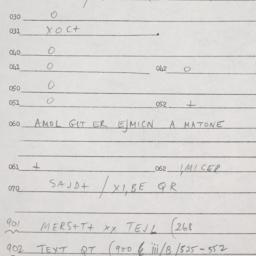 030 0
031 XOCT
040 0
041 0 042 0
050 0
051 0 052 +
060 AMOL GET ER EJMICN A MATONE
061 + 062 IMICER
070 SAJD+ / XI,BE QR
901 MERS+T+ xx TEJL (268
902 TEXT QT (900 & iii/B/525-552